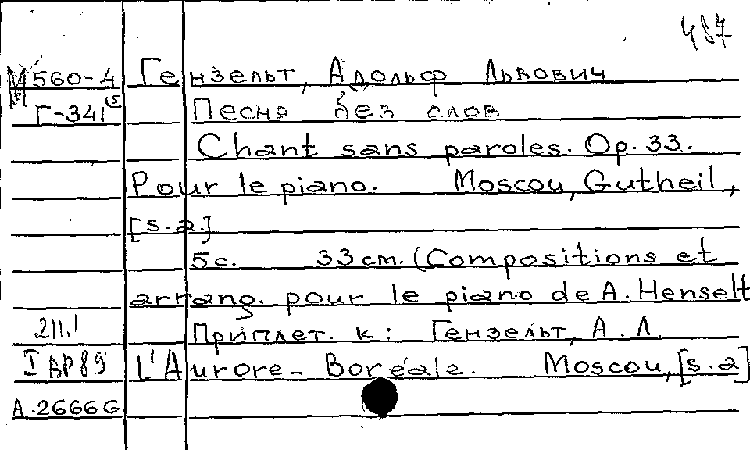 487
М560-4 Гензельт, Адольф Львович
Г-341 Песня без слов
Chant sans paroles. Op. 33.
Pour le piano. Moscou, Gutheil,
[s.a.]
5с. 33 cm. (Compositions et
arrang. pour le piano de A. Henselt
211.1 Приплет. к: Гензельт, А. Л.
I ВР89 L'Aurore-Boréale. Moscou, [s.a]
А.26666